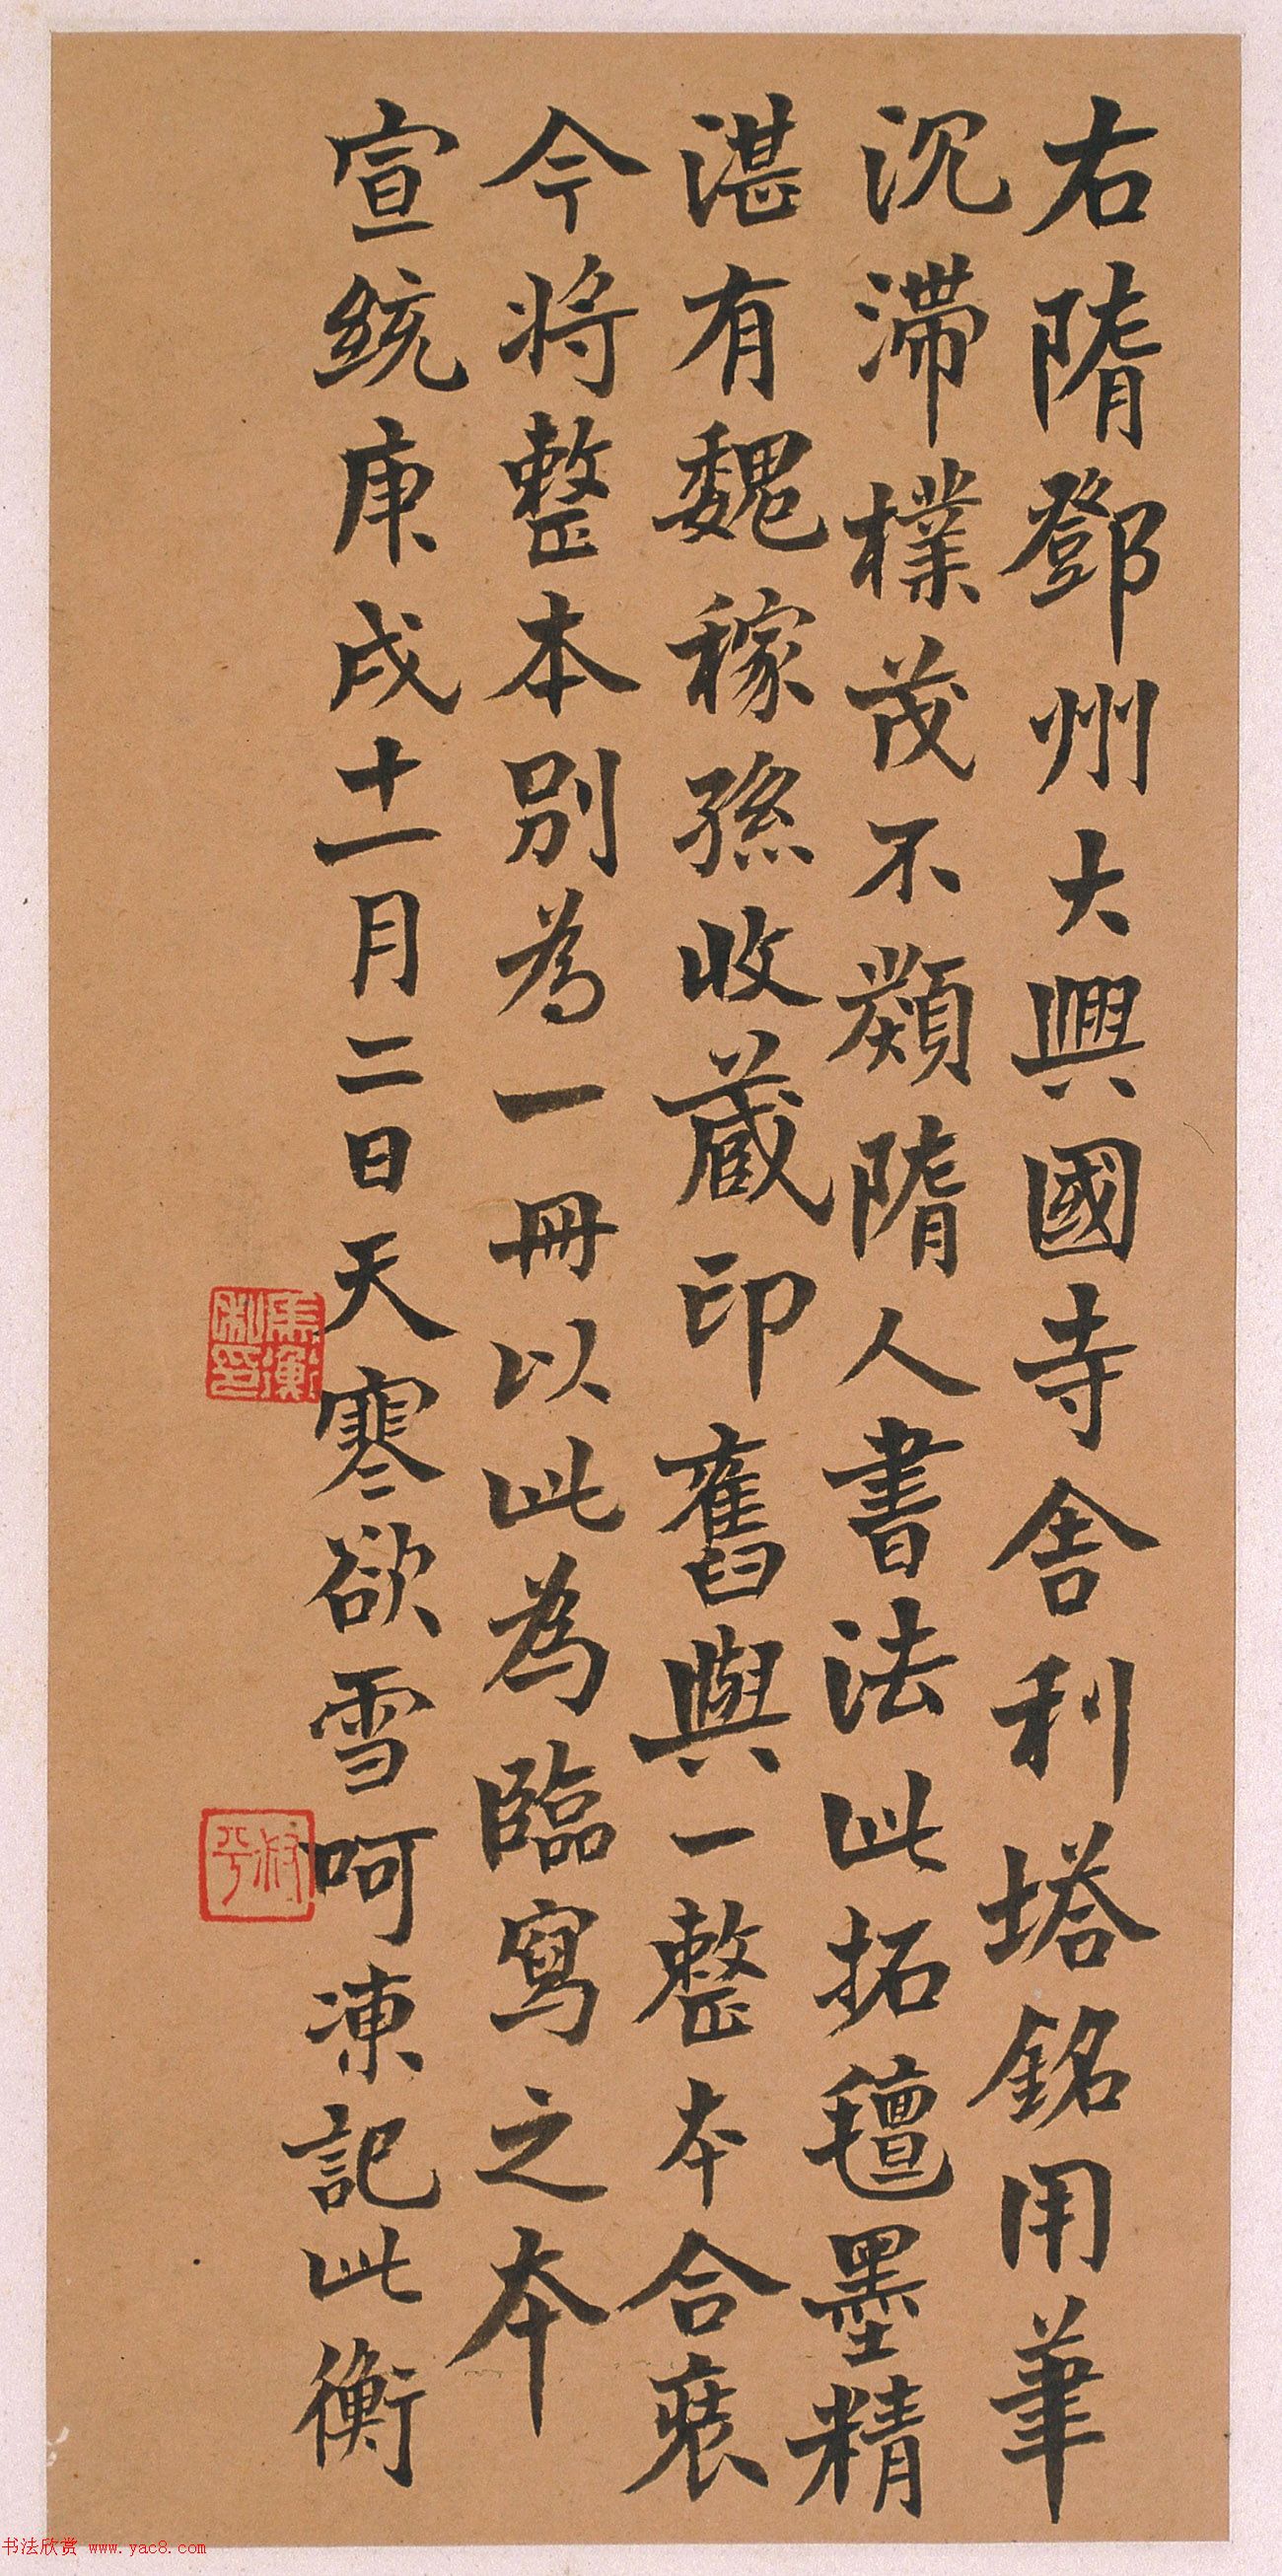 右隋鄧州大興國寺舍利塔銘用筆
沉滯樸茂不類隋人書法此拓氊墨精
湛有魏稼孫收藏印舊與一整本合裝
今將整本別為一冊以此為臨寫之本
宣統庚戌十一月二日天寒欲雪呵凍記此衡
馬衡私印
叔平
书法欣赏 www.yac8.com